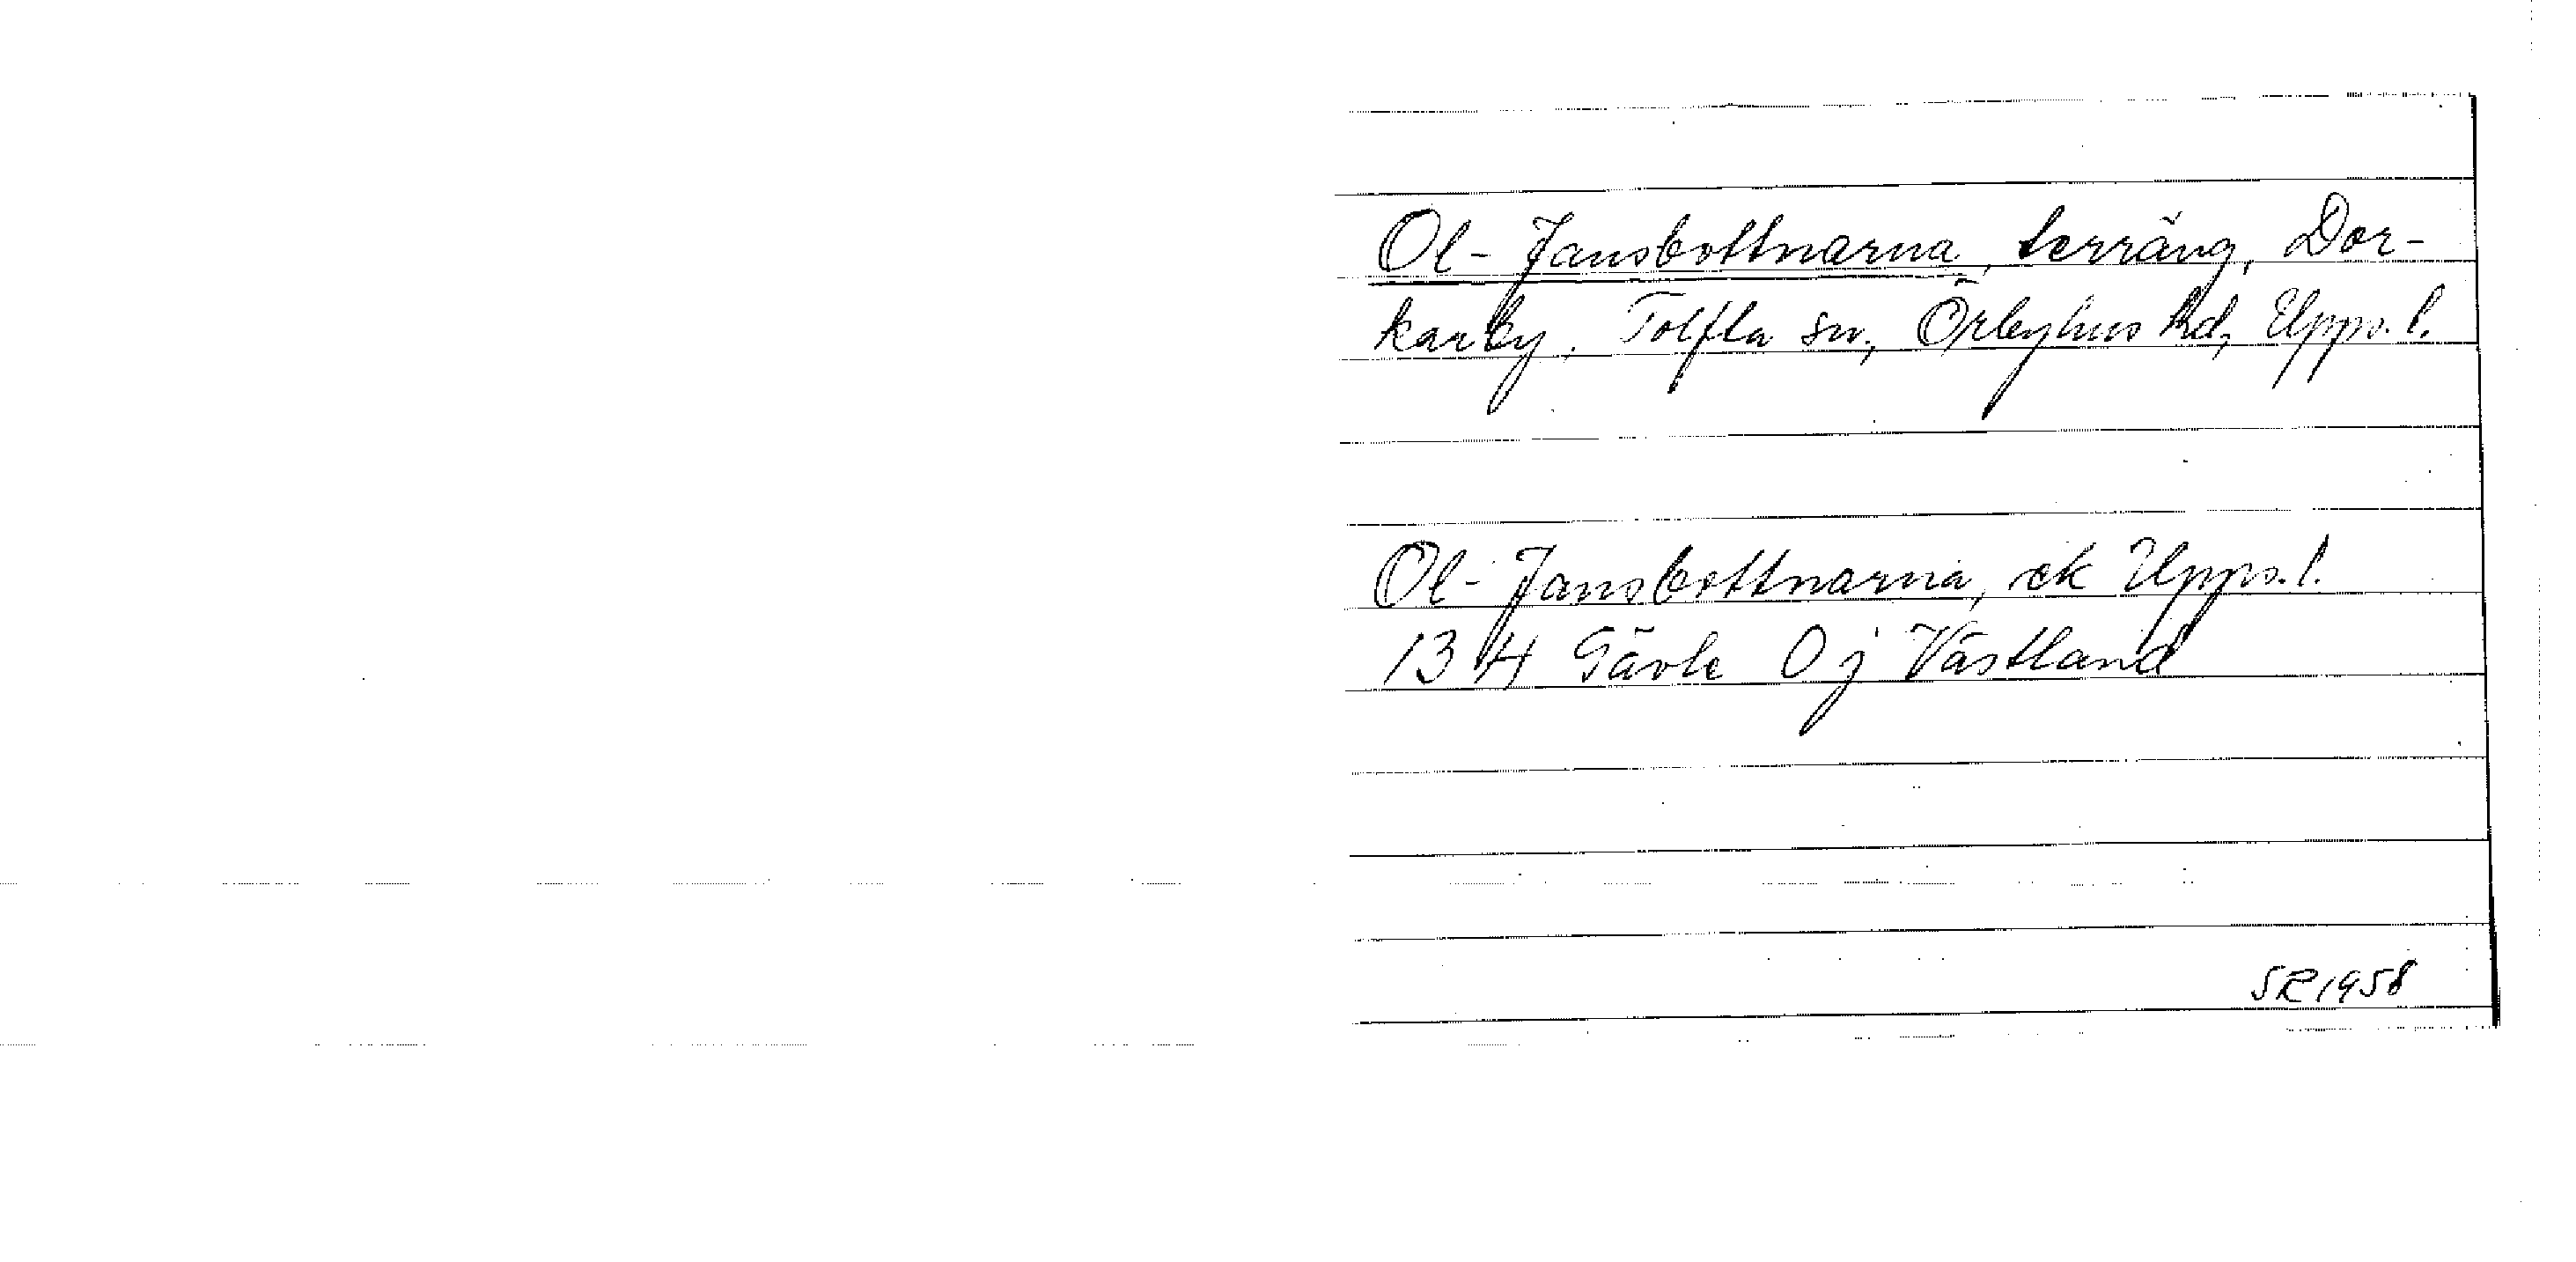 Ol-Jansbottnarna, terräng, Dor-
karby, Tolfta sn, Örbyhus hd, Upps. l.
Ol-Jansbottnarna, ek Upps. l.
13 H Gävle 0 j Västland
SR 1958